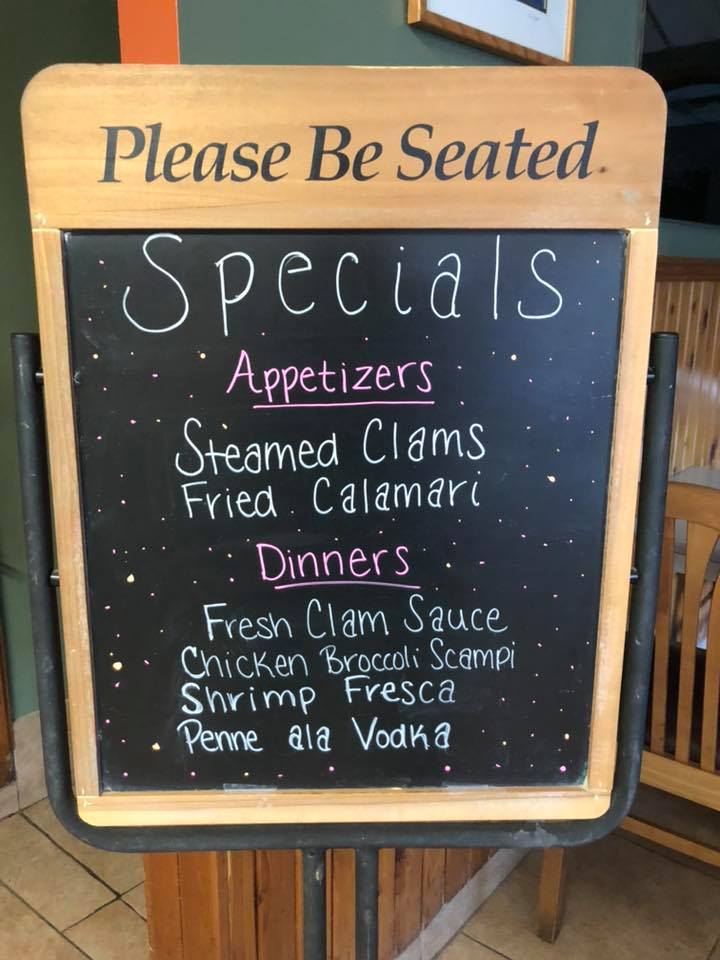 Please Be Seated
Specials
Appetizers
Steamed Clams
Fried Calamari
Dinners
Fresh Clam Sauce
Chicken Broccoli Scampi
Shrimp Fresca
Penne ala Vodka